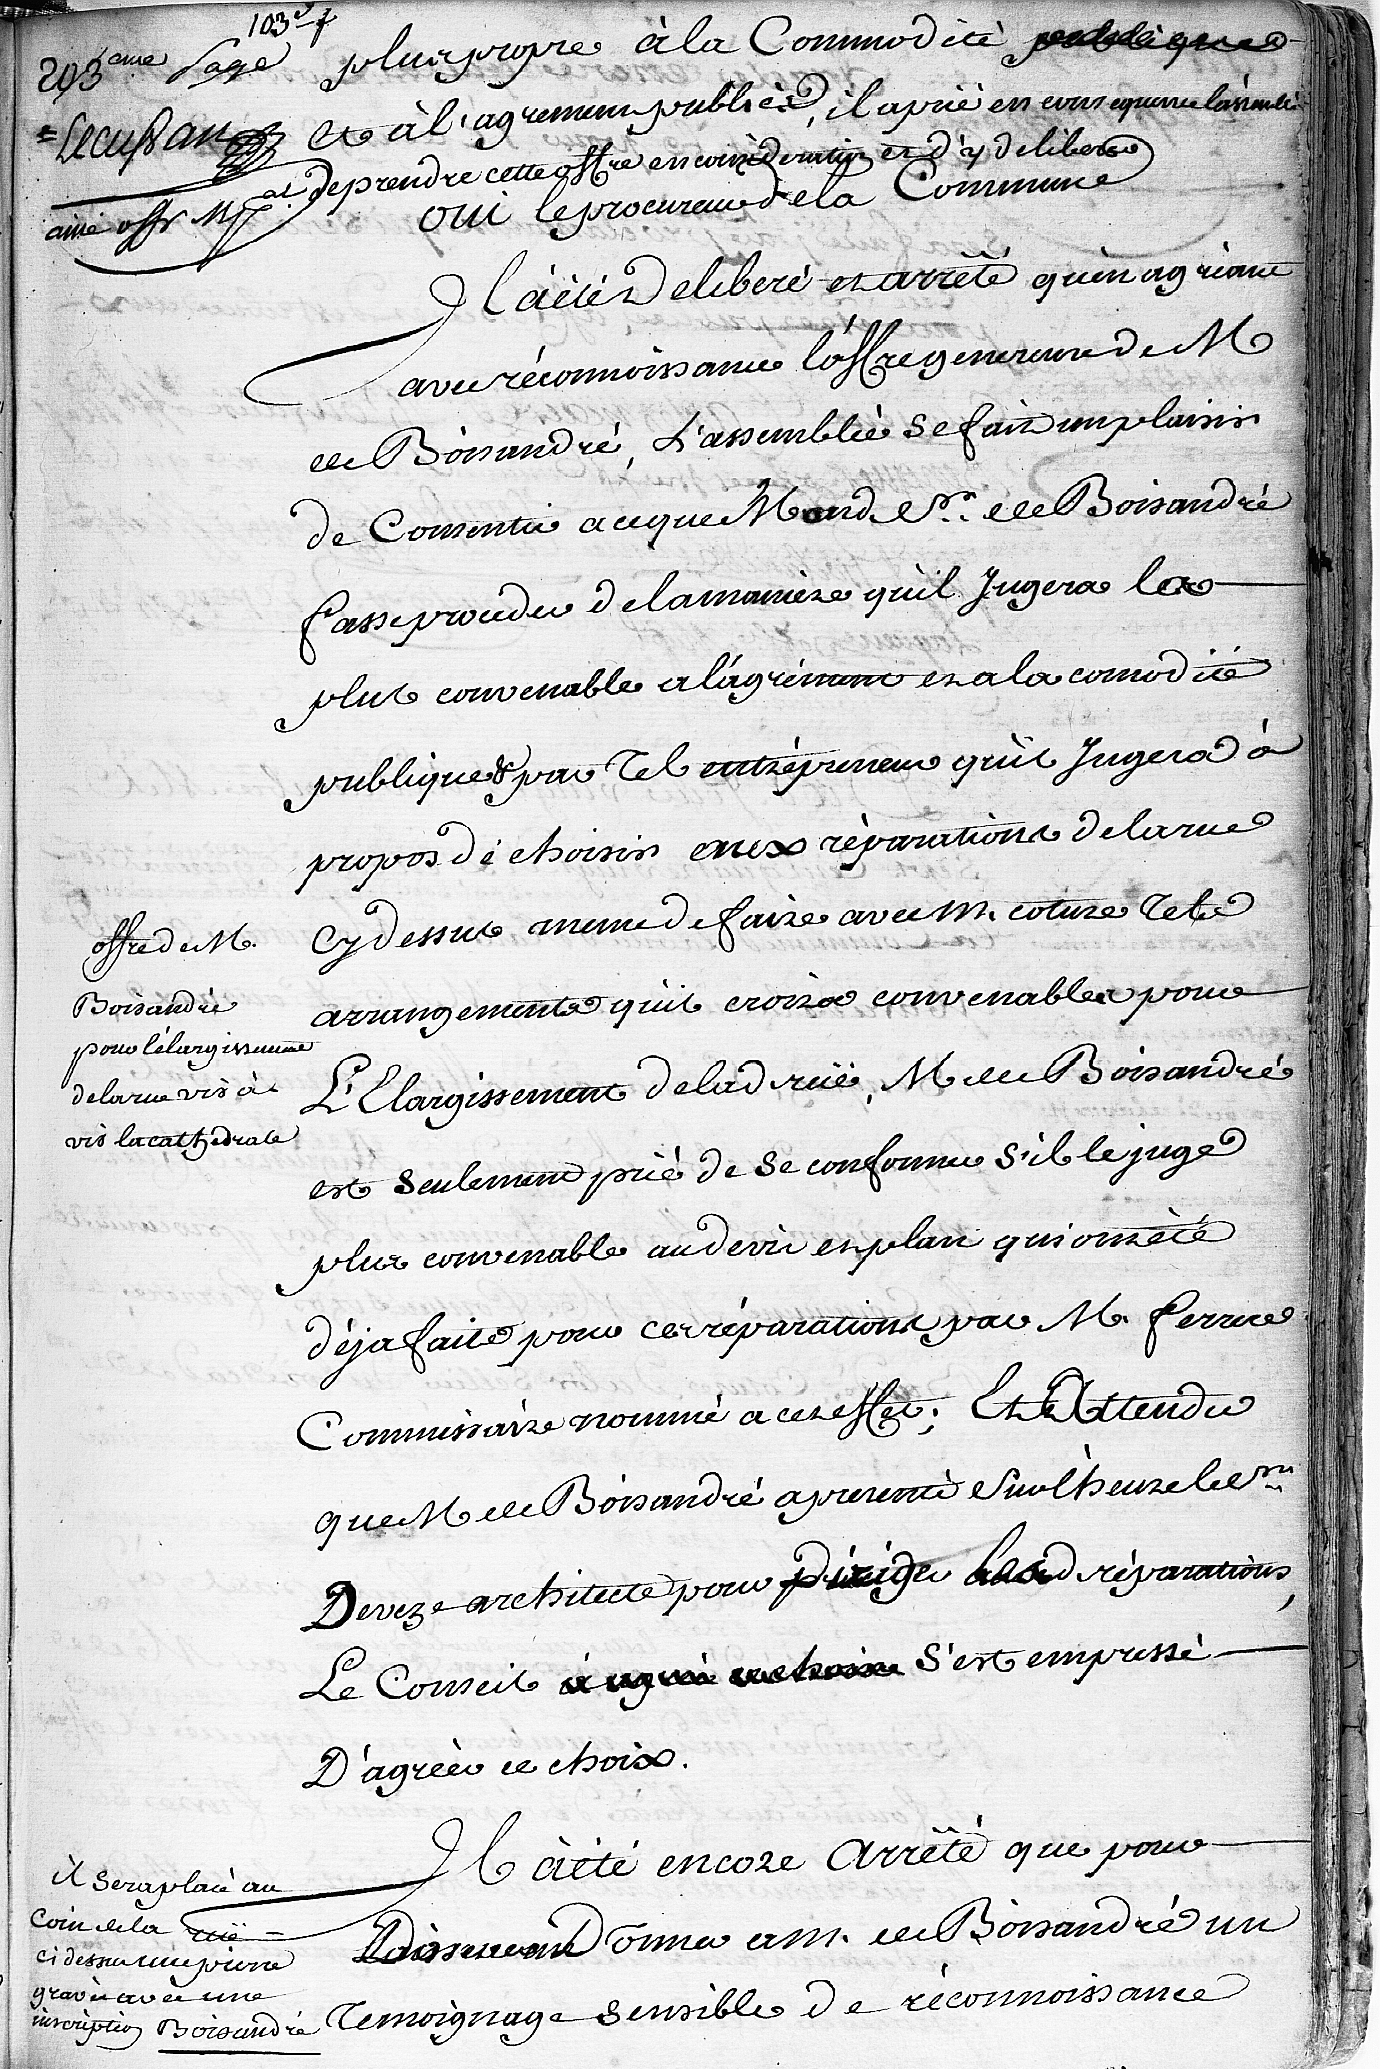 103e f
293eme Page
plus propre à la Commodité publique
et à l'agrement publics, il a prié en consequence l'assemblée
de prendre cette offre en considération et d'y deliberer
ainé offr Mpal
oui le procureur de la Commune
Il a été Deliberé et arrêté qu'en agréant
avec réconnoissance l'offre genereuse de M
de Boisandré, L'assemblée se fait un plaisir
de Consentir a ce que Mond. Sr. de Boisandré
fasse proceder de la maniere qu'il Jugera la
plus convenable a l'agrément et a la comodité
publique & par Tel entrépreneur qu'il Jugera à
propos de choisir aux réparations de la rue
Cy dessus meme de faire avec M. coture Tels
arrangements qu'il croira convenables pour
L'Elargissement de lad ruë, M. de Boisandré
est seulement prié de se conformer s'il le juge
plus convenable au devis et plan qui ont été
déja faits pour ces réparations par M. ferrere
Commissaire nommé a cet effet; Et Attendu
que M de Boisandré a presenté sur l'heure le Sr
Deveze architecte pour Diriger lesd réparations,
Le Conseil s'est empressé
D'agréer ce choix.
Il a été encore Arrêté que pour
Donner a M. de Boisandré un
Temoignage sensible de réconnoissance
offre de M.
Boisandré
pour l'élargissement
de la rue vis à
vis la cathédrale
il sera placé au
coin de la ruë
ci dessus une pierre
gravée avec une
inscription Boisandré